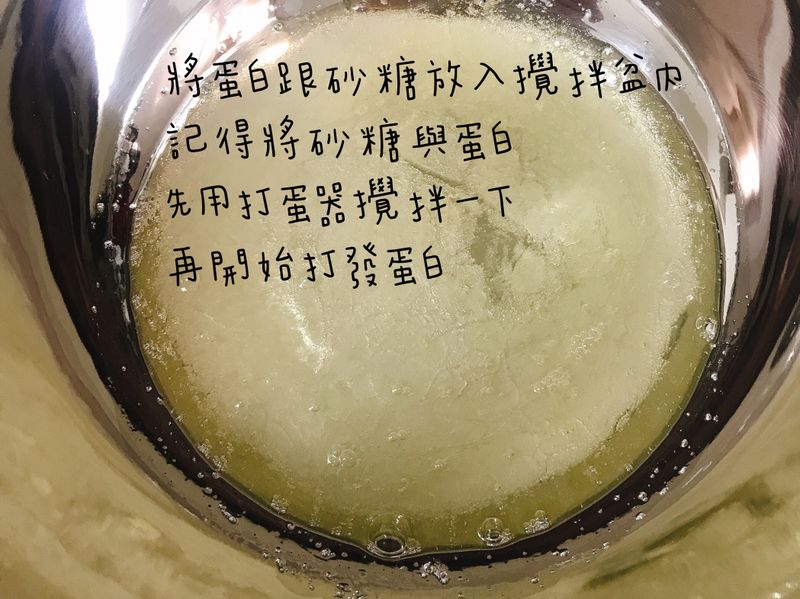 將蛋白跟砂糖放入攪拌盆內
記得將砂糖與蛋白
先用打蛋器攪拌一下
再開始打發蛋白